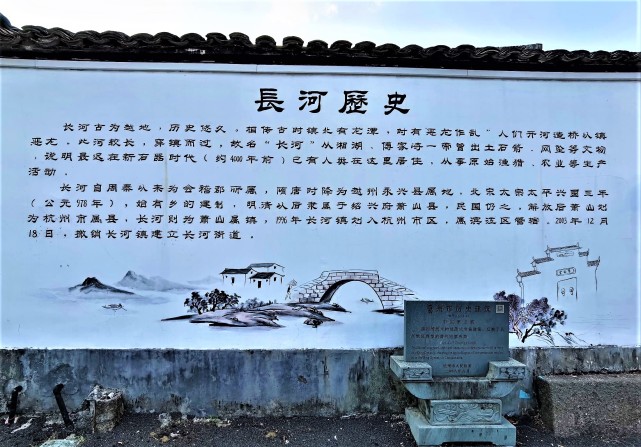 長河歷史
长河古为越地，历史悠久，相传古时镇北有龙潭，时有恶龙作乱"人们开河造桥以镇
恶龙。此河较长，穿镇而过，故名“长河”从湘湖、傅家峙一带曾出土石箭、网坠等文物
，说明最迟在新石器时代（约4000年前）已有人类在这里居住，从事原始渔猎、农业等生产
活动。
长河自周秦以来为会稽郡所属，隋唐时降为越州永兴县属地，北宋太宗太平兴国三年
（公元978年），始有乡的建制，明清以后隶属于绍兴府萧山县，民国仍之，解放后萧山划
为杭州市属县，长河则为萧山属镇，1996年长河镇划入杭州市区，属滨江区管辖。2003年12月
18日，撤销长河镇建立长河街道。